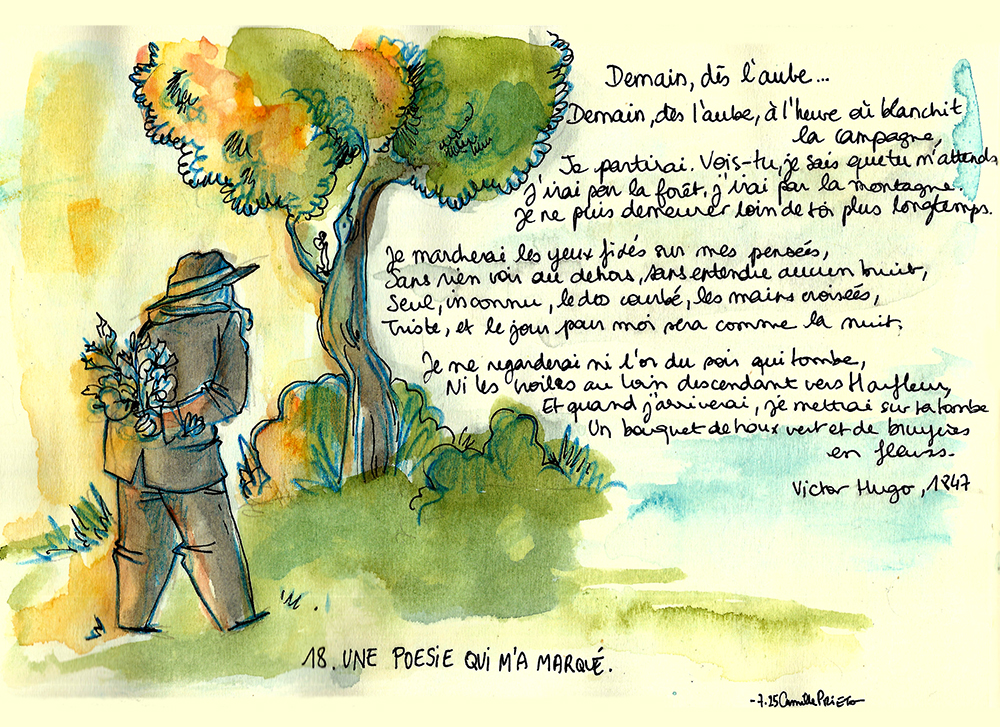 Demain, dès l'aube...
Demain, dès l'aube, à l'heure où blanchit
la campagne,
Je partirai. Vois-tu, je sais que tu m'attends
J'irai par la forêt, j'irai par la montagne.
Je ne puis demeurer loin de toi plus longtemps.
Je marcherai les yeux fixés sur mes pensées,
Sans rien voir au dehors, sans entendre aucun bruit,
Seul, inconnu, le dos courbé, les mains croisées,
Triste, et le jour pour moi sera comme la nuit.
Je ne regarderai ni l'or du soir qui tombe,
Ni les voiles au loin descendant vers Harfleur,
Et quand j'arriverai, je mettrai sur ta tombe
Un bouquet de houx vert et de bruyères
en fleurs.
Victor Hugo, 1847
18. UNE POESIE QUI M'A MARQUÉ.
-7.25 Camille PRIETO